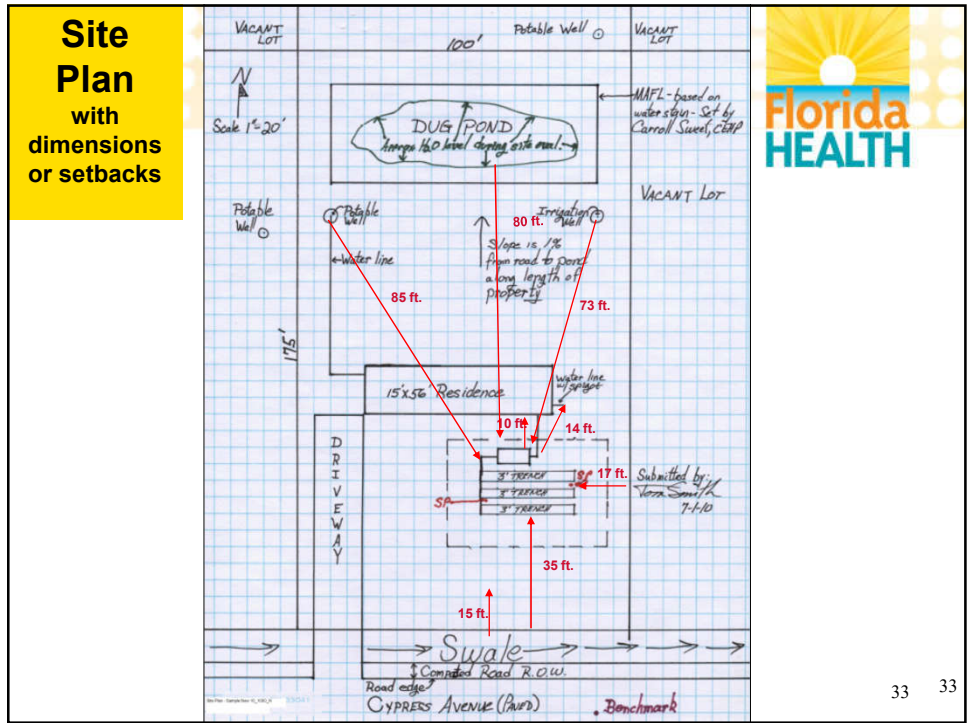 Site
Plan
with
dimensions
or setbacks
VACANT
LOT
100'
Potable Well
VACANT
LOT
N
Scale 1"=20'
DUG POND
Average H2O level during site eval.
MAFL - based on
water stain - Set by
Carroll Sweet, CEHP
Florida
HEALTH
VACANT LOT
Potable
Well
Potable
Well
Irrigation
Well
80 ft.
←Water line
Slope is 1%
from road to pond
along length of
property
85 ft.
73 ft.
175'
15'x56' Residence
water line
w/spigot
10 ft.
14 ft.
DRIVEWAY
3' TRENCH
SP
17 ft.
3' TRENCH
SP
3' TRENCH
Submitted by:
Tom Smith
7-1-10
35 ft.
15 ft.
Swale
Compacted Road R.O.W.
Road edge
CYPRESS AVENUE (PAVED)
. Benchmark
33
33